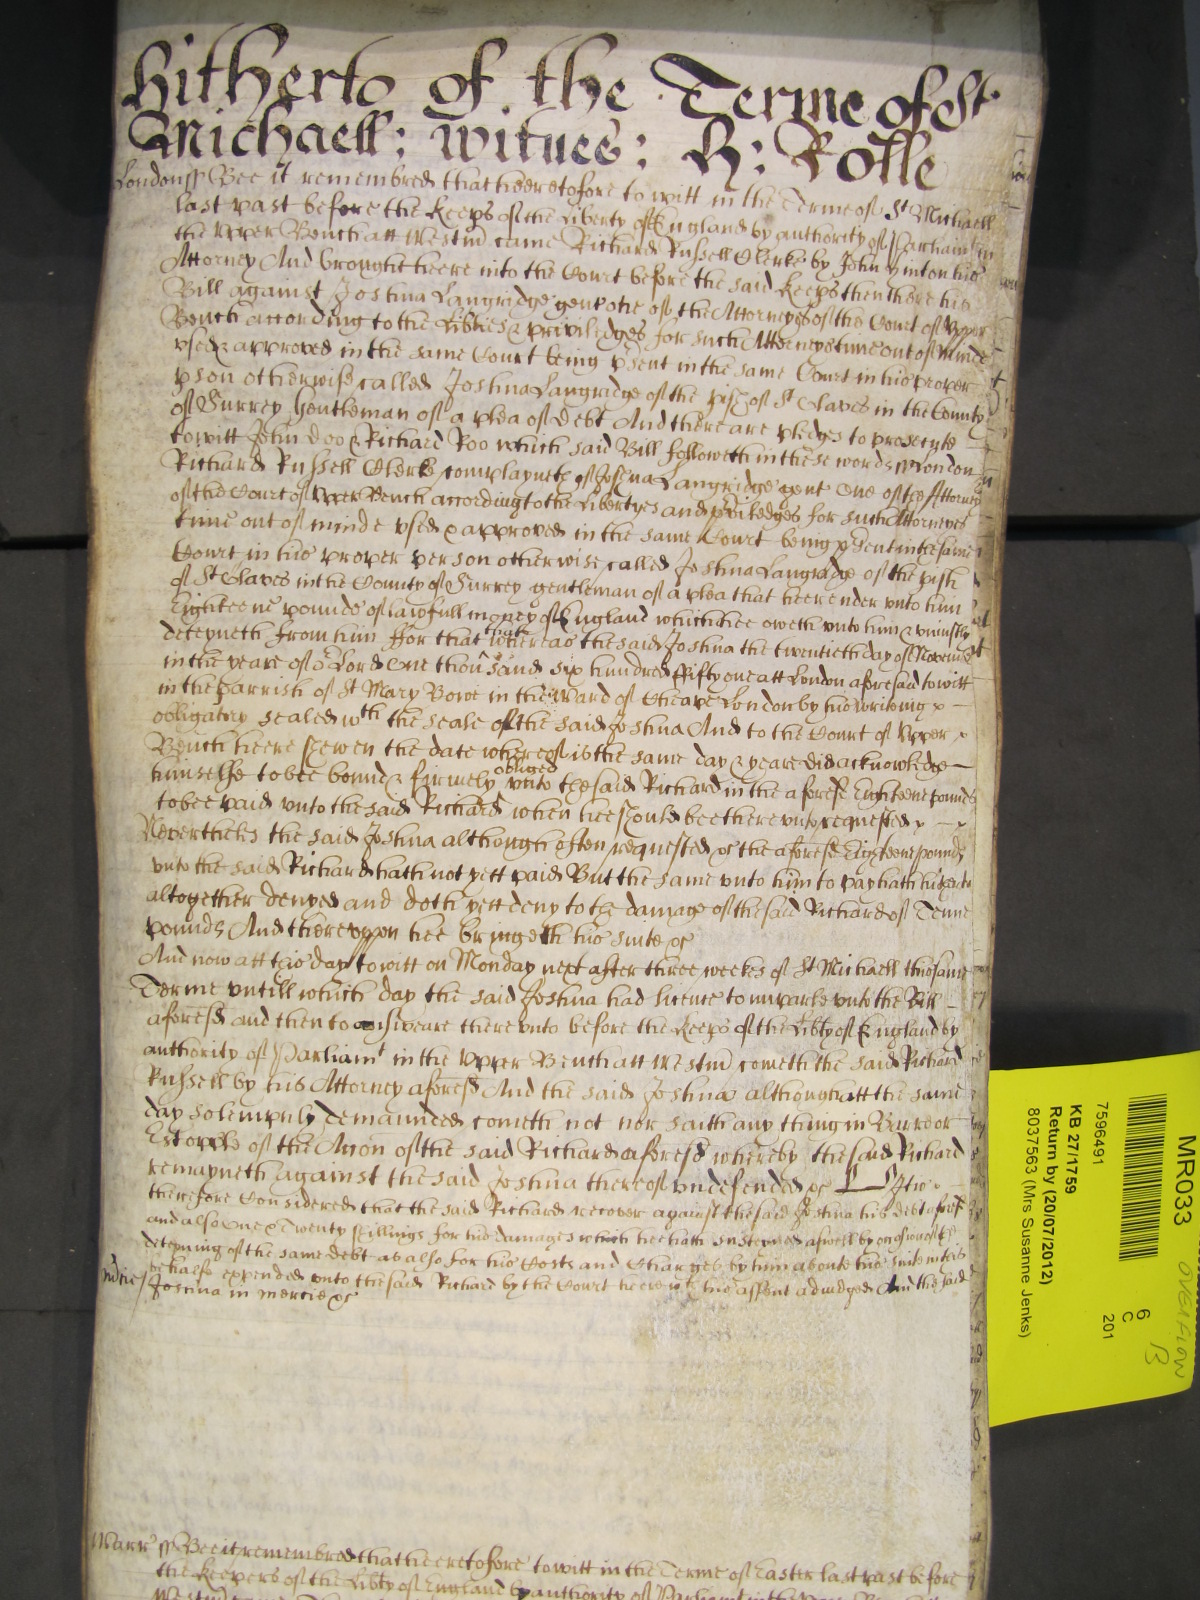 Hitherto of the Terme of St.
Michaell: witnes: H: Rolle
London ss Bee it remembred that heeretofore to witt in the Terme of St Michaell
last past before the Keeps of the Liberty of England by authority of Parliamt in
the Upper Bench att Westm came Richard Russell Clerke by John Hinton his
Attorney And brought heere into the Court before the said Keeps then there his
Bill against Jostina Langridge gent one of the Attorneyes of the Court of Upper
Bench according to the Libties & priviledges for such Attorneys time out of minde
used & approved in the same Court being psent in the same Court in his proper
pson otherwise called Jostina Langridge of the pish of St Olaves in the County
of Surrey Gentleman of a plea of Debt And there are pledges to prosecute
to witt John Doo & Richard Roo which said Bill followeth in these words ss London
Richard Russell Clerke complayneth of Jostina Langridge gent one of the Attorneys
of the Court of Upper Bench according to the Libertyes and priviledges for such Attorneyes
time out of minde used & approved in the same Court being psent in the same
Court in his proper person otherwise called Jostina Langridge of the pish
of St Olaves in the County of Surrey gentleman of a plea that hee render unto him
Eighteene pounds of lawfull money of England which hee oweth unto him & uniustly
deteyneth from him ffor that whereas the said Jostina the twentieth day of Novemb
in the yeare of or Lord One thousand six hundred ffifty one att London aforesaid to witt
in the parrish of St Mary Bowe in the ward of Cheape London by his writeing x
obligatory sealed wth the seale of the said Jostina And to the Court of Upper x
Bench heere shewen the date whereof is the same day & yeare did acknowledge
himselfe to bee bound & firmely obliged unto the said Richard in the aforesd Eighteene pounds
to bee paid unto the said Richard when hee should bee thereunto requested x x
Neverthelesse the said Jostina although often requested &c the aforesd Eighteene pounds
unto the said Richard hath not yett paid But the same unto him to pay hath hitherto
altogether denyed and doth yett deny to the damage of the said Richard of Tenne
pounds And thereuppon hee bringeth his suite &c
And now att this day to witt on Monday next after three weekes of St Michaell this same
Terme untill which day the said Jostina had licence to imparle unto the Bill
aforesd and then to answeare there unto before the Keeps of the Libty of England by
authority of Parliamt in the Upper Bench att Westm cometh the said Richard
Russell by his Attorney aforesd And the said Jostina although att the same
day solempnly demaunded cometh not nor saith any thing in Barre or
Estopple of the Accon of the said Richard aforesd whereby the said Richard
remayneth against the said Jostina thereof undefended &c It is
therefore Considered that the said Richard recover against the said Jostina his debt aforesd
and also One & Twenty shillings for his damages which hee hath susteyned aswell by occasion of the
deteyning of the same debt as also for his Costs and Charges by him aboute his suite in this
behalfe expended unto the said Richard by the Court heere wth his assent adiudged And the said
Jostina in mercie &c
Marr ss Bee it remembred that heeretofore to witt in the Terme of Easter last past before
the Keepers of the Libty of England by authority of Parliamt in the
MR033
7596491
KB 27/1759
Return by (20/07/2012)
8037563 (Mrs Susanne Jenks)
6
C
201
OVERFLOW
13